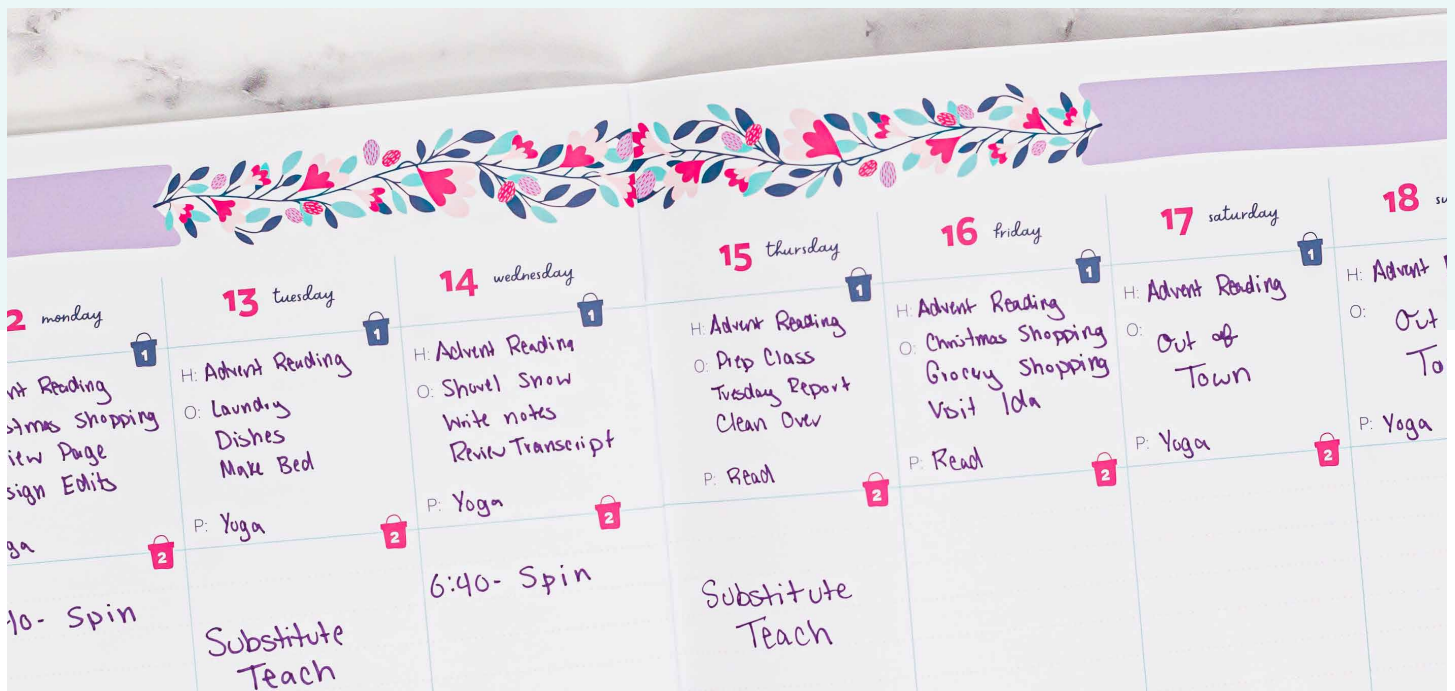 2 monday
1
nt Reading
stmas Shopping
iew Page
sign Edits
ga
2
40- Spin
13 tuesday
1
H: Advent Reading
O: Laundry
Dishes
Make Bed
P: Yoga
2
Substitute
Teach
14 wednesday
1
H: Advent Reading
O: Shovel Snow
Write notes
Review Transcript
P: Yoga
2
6:40- Spin
15 thursday
1
H: Advent Reading
O: Prep Class
Tuesday Report
Clean Over
P: Read
2
Substitute
Teach
16 friday
1
H: Advent Reading
O: Christmas Shopping
Grocery Shopping
Visit Ida
P: Read
2
17 saturday
1
H: Advent Reading
O:
Out of
Town
P: Yoga
2
18 su
H: Advent
O:
Out
To
P: Yoga